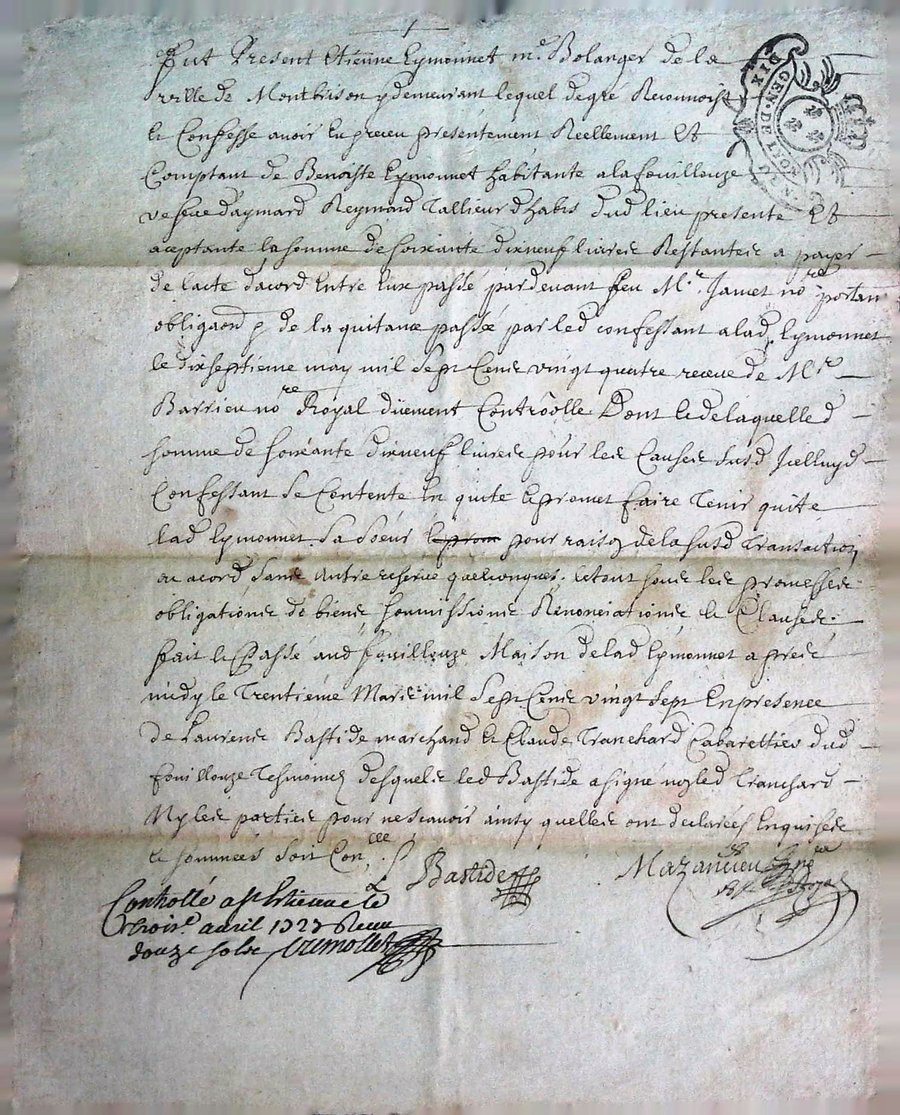 Fut Present Etienne Eymonnet me. Bolanger de la
ville de Montbrison y demeurant lequel degre Reconnoist
Et Confesse avoir Eu receu presentement Reellement Et
Comptant de Benoiste Eymonnet habitante a lafouillouze
vefve daymard Reymond Tallieur dhabis dud lieu presente Et
aceptante la somme de soixante dixneuf livres Restantes a payer
de lacte dacord Entre Eux passé pardevant feu Me. Jamet nore portan
obligaon p de la quitance passée par led confessant a lad Eymonnet
le dixseptieme may mil Sept Cens vingt quatre receue de Mr
Barrieu nore Royal düement Controolle Dont Et de laquelle d
somme de soixante dixneuf livres pour les Causes susd Icelluy d
Confessant Se Contente En quite Et promet faire Tenir quite
lad Eymonnet Sa Soeur pour raison de la susd Transaction
ou acord, sans Autre reserve quelconques. Le tout sous les promesses
obligations de biens soumissions Renonciations Et Clauses
fait Et Passé aud fouillouze Maison de lad Eymonnet apres
midy le Trentieme Mars mil Sept Cens vingt sept En presence
de Laurens Bastide marchand Et Claude Tranchard Cabarettier dud
fouillouze Tesmoins desquels led Bastide a signé non led Tranchard
Ny les parties pour ne scavoir ainsy quelles ont declarées Enquises
Et sommées soit Con.lee
Bastide
Mazancieu
nre
Royal
Controllé a St Etienne le
trois. avril 1727 Receu
douze sols
DIX DEN
GEN. DE LYON